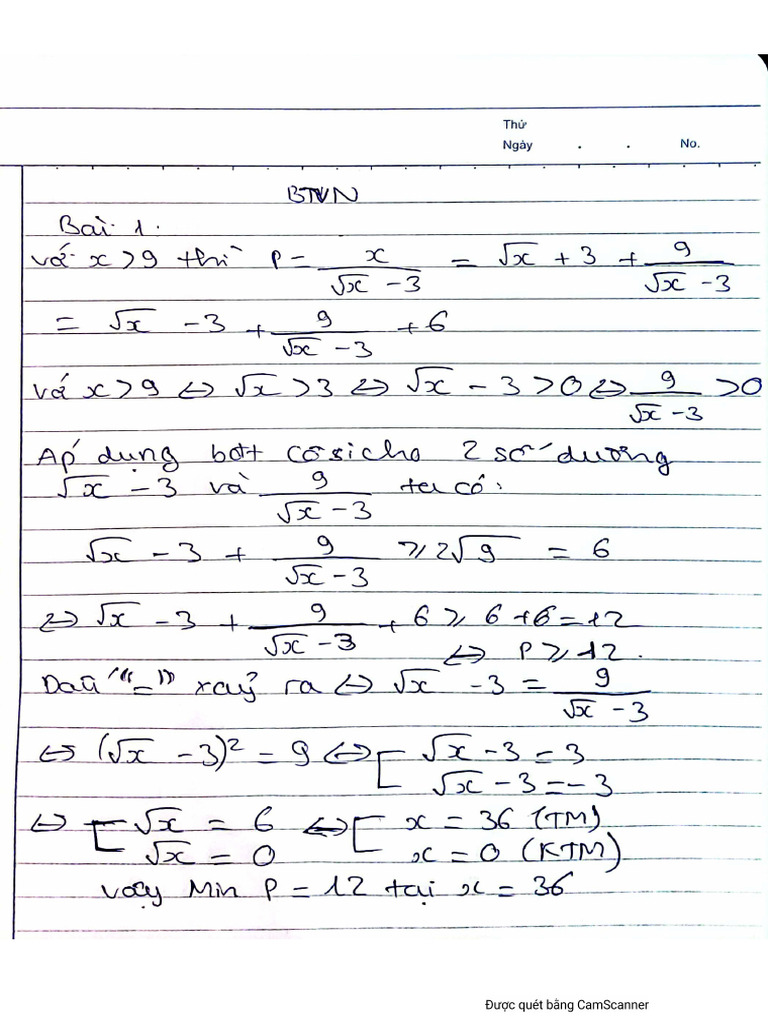 Thứ
Ngày . . No.
BTVN
Bài 1.
với x > 9 thì P = x/(√x - 3) = √x + 3 + 9/(√x - 3)
= √x - 3 + 9/(√x - 3) + 6
với x > 9 ⇔ √x > 3 ⇔ √x - 3 > 0 ⇔ 9/(√x - 3) > 0
Áp dụng bđt cô si cho 2 số dương
√x - 3 và 9/(√x - 3) ta có:
√x - 3 + 9/(√x - 3) ⩾ 2√9 = 6
⇔ √x - 3 + 9/(√x - 3) + 6 ⩾ 6 + 6 = 12
⇔ P ⩾ 12.
Dấu "=" xảy ra ⇔ √x - 3 = 9/(√x - 3)
⇔ (√x - 3)² = 9 ⇔ [ √x - 3 = 3
√x - 3 = -3
⇔ [ √x = 6 ⇔ [ x = 36 (TM)
√x = 0 x = 0 (KTM)
Vậy Min P = 12 tại x = 36
Được quét bằng CamScanner